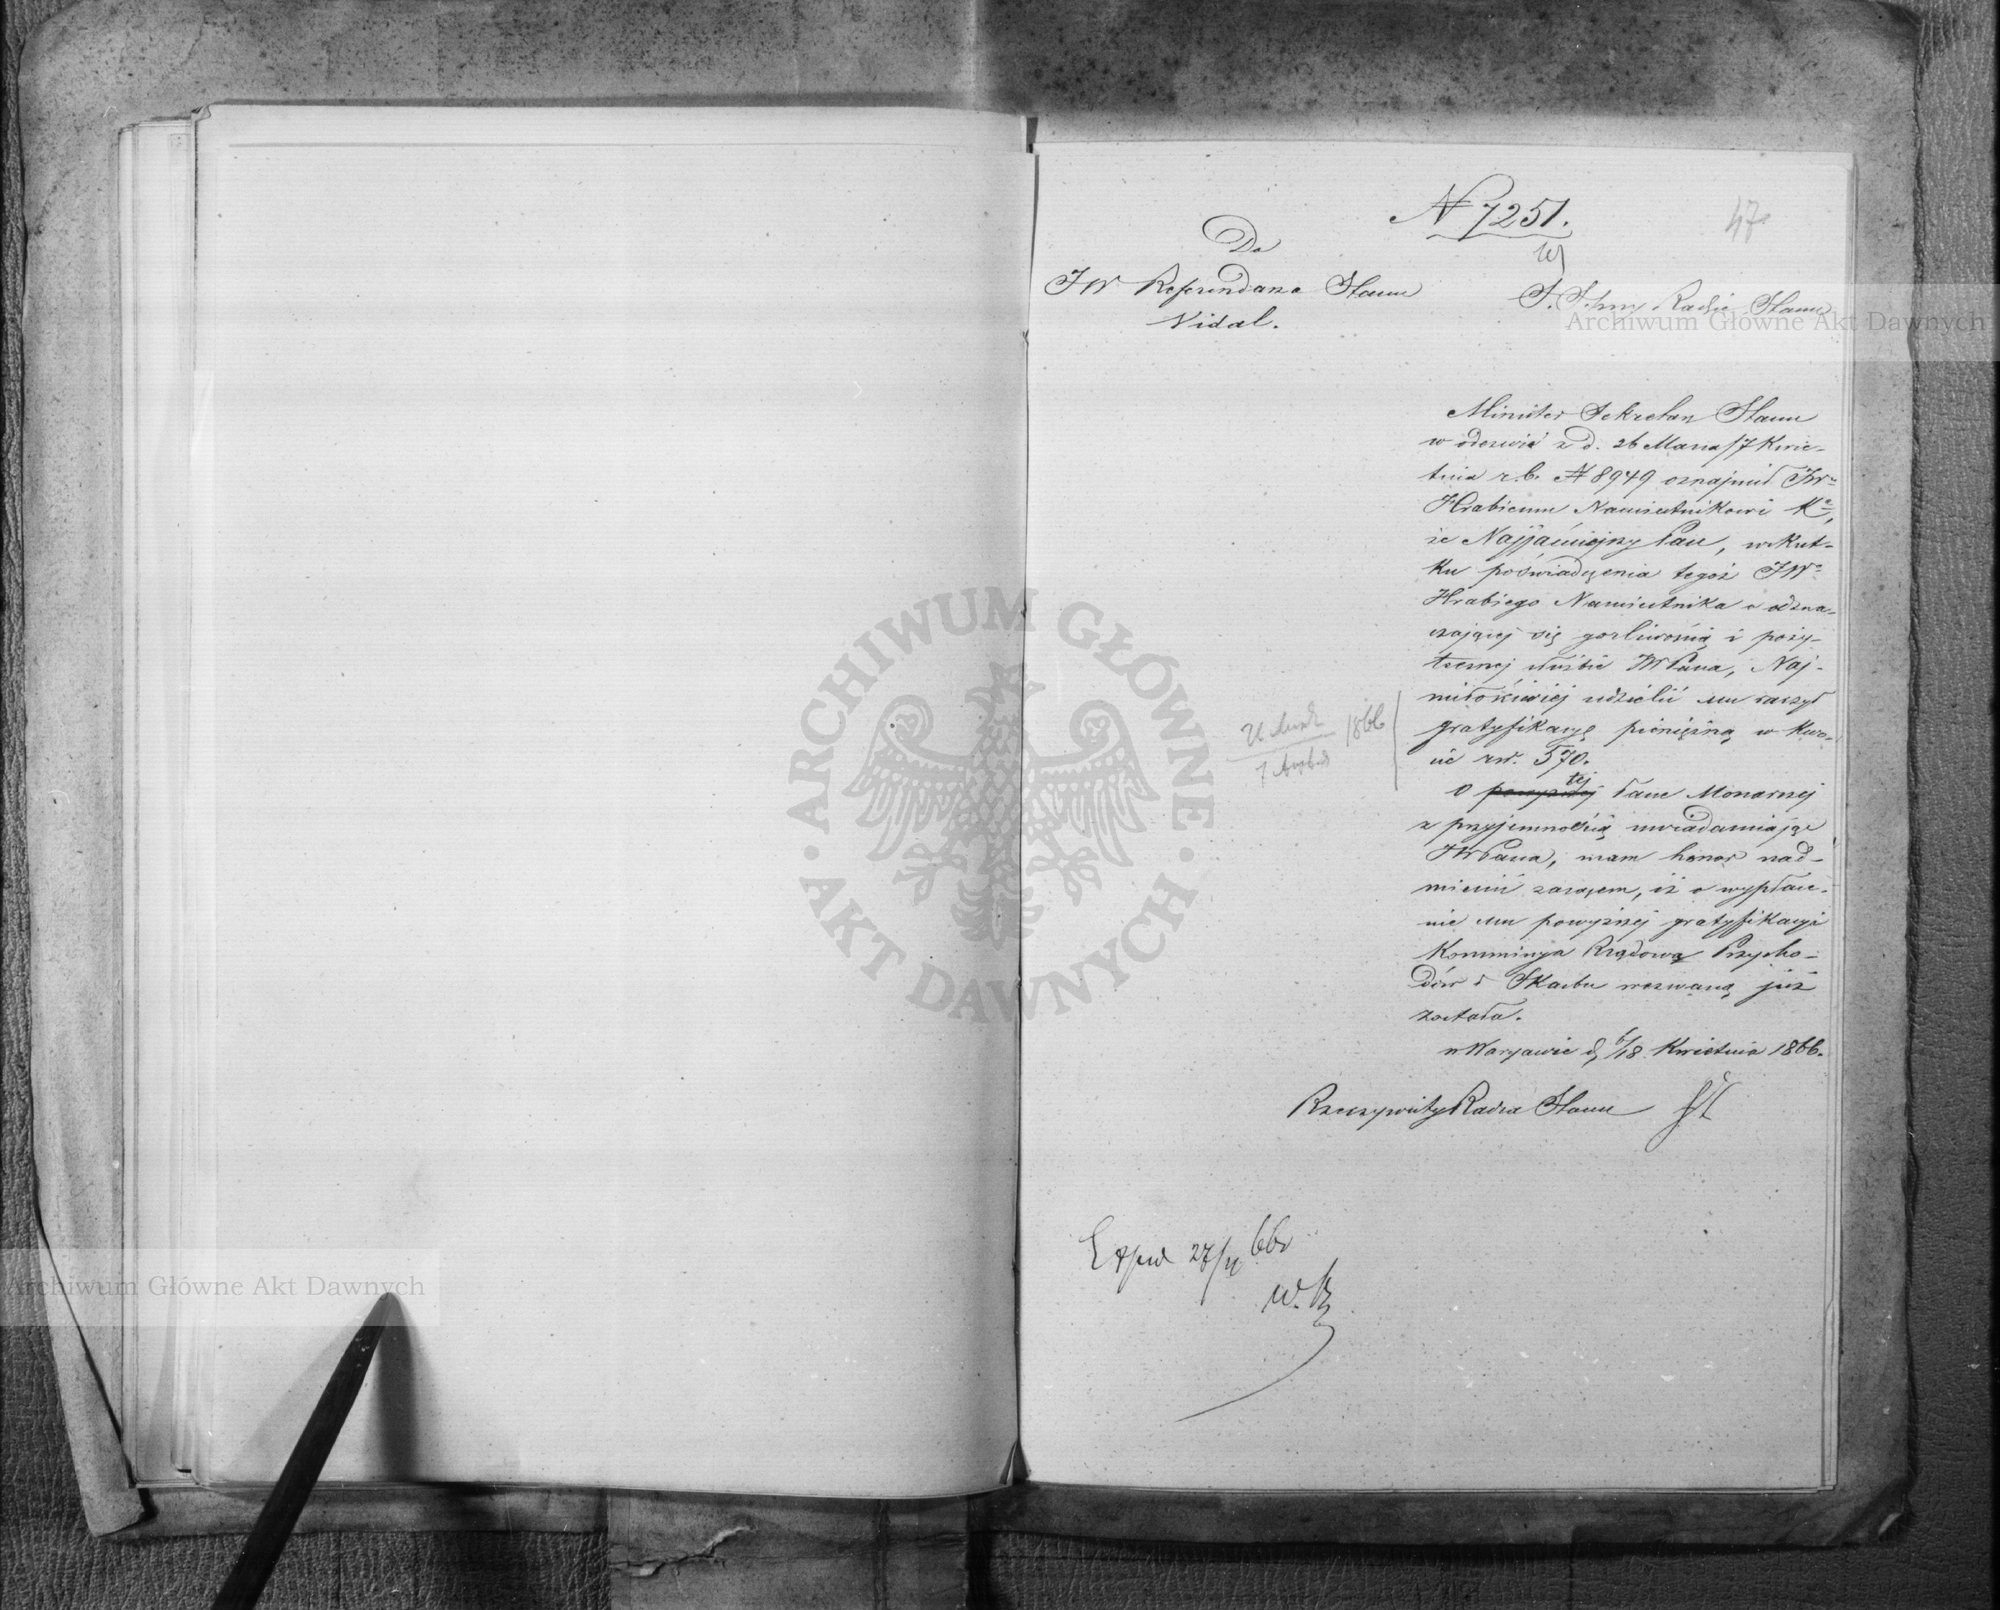 N 7251.
47
Do
JW Referendarza Stanu
Vidal.
w
Radzie Stanu
Archiwum Główne Akt Dawnych
Minister Sekretarz Stanu
w odezwie z d. 26 Marca/7 Kwie-
tnia r.b. N 8949 oznajmił JWu
Hrabiemu Namiestnikowi Ka,
że Najjaśniejszy Pan, wskut-
ku poświadczenia tegoż JWo
Hrabiego Namiestnika o odzna-
czającej się gorliwością i poży-
tecznej służbie JWPana, Naj-
miłościwiej udzielić mu raczył
gratyfikacyę pieniężną w kwo-
cie rsr. 570.
1866
O powyższej tej Łasce Monarszej
z przyjemnością uwiadamiając
JWPana, mam honor nad-
mienić zarazem, iż o wypłace-
nie mu powyższej gratyfikacyi
Kommissya Rządowa Przycho-
dów i Skarbu wezwaną już
została.
w Warszawie d. 6/18 Kwietnia 1866.
Rzeczywisty Radca Stanu
27/4 66
W.
ARCHIWUM GŁÓWNE
AKT DAWNYCH
Archiwum Główne Akt Dawnych